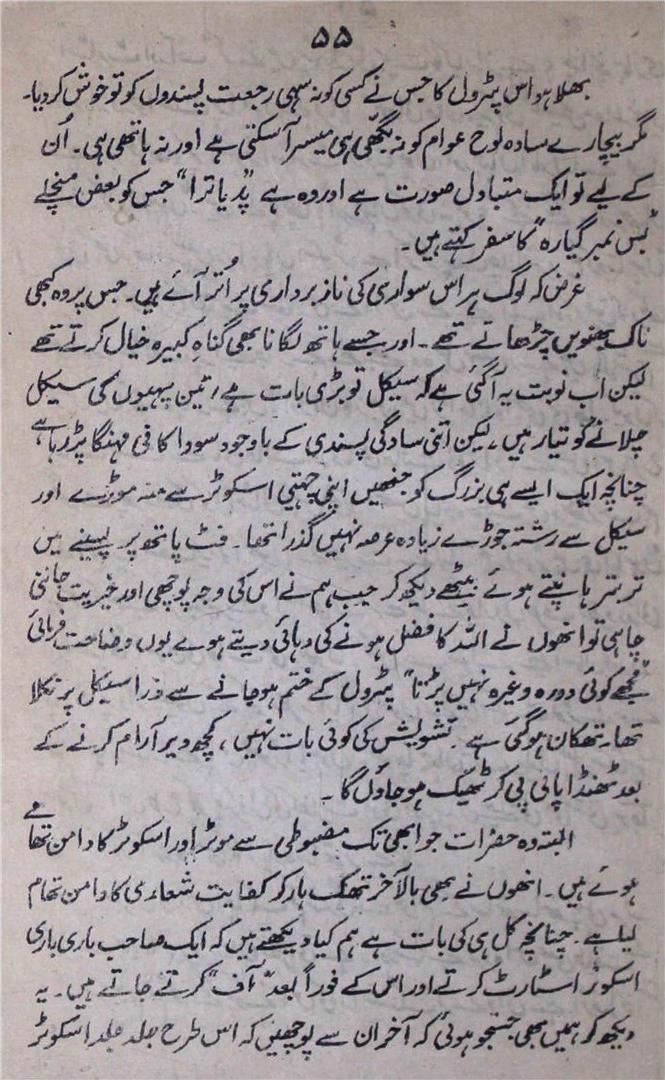 ۵۵
بھلا ہو اس پٹرول کا جس نے کسی کو نہ سہی رجعت پسندوں کو تو خوش کر دیا۔
مگر بیچارے سادہ لوح عوام کو نہ بگھّی ہی میسر آسکتی ہے اور نہ ہاتھی ہی۔ اُن
کے لیے تو ایک متبادل صورت ہے اور وہ ہے "پد یاترا" جس کو بعض منچلے
"بس نمبر گیارہ" کا سفر کہتے ہیں۔
غرض کہ لوگ ہر اس سواری کی ناز برداری پر اُتر آئے ہیں۔ جس پر وہ کبھی
ناک بھنویں چڑھاتے تھے۔ اور جسے ہاتھ لگانا بھی گناہِ کبیرہ خیال کرتے تھے
لیکن اب نوبت یہ آگئی ہے کہ سیکل تو بڑی بات ہے، تین پہیوں کی سیکل
چلانے کو تیار ہیں، لیکن اتنی سادگی پسندی کے باوجود سودا کافی مہنگا پڑ رہا ہے
چنانچہ ایک ایسے ہی بزرگ کو جنھیں اپنی چہیتی اسکوٹر سے منہ موڑے اور
سیکل سے رشتہ جوڑے زیادہ عرصہ نہیں گذرا تھا۔ فٹ پاتھ پر پسینے میں
تربتر ہانپتے ہوئے بیٹھے دیکھ کر جب ہم نے اس کی وجہ پوچھی اور خیریت جاننی
چاہی تو انھوں نے اللہ کا فضل ہونے کی دہائی دیتے ہوے یوں وضاحت فرمائی
"مجھے کوئی دورہ وغیرہ نہیں پڑتا" پٹرول کے ختم ہوجانے سے ذرا سیکل پر نکلا
تھا۔ تھکان ہوگئی ہے۔ تشویش کی کوئی بات نہیں، کچھ دیر آرام کرنے کے
بعد ٹھنڈا پانی پی کر ٹھیک ہو جاؤں گا۔
البتہ وہ حضرات جو ابھی تک مضبوطی سے موٹر اور اسکوٹر کا دامن تھامے
ہوئے ہیں۔ انھوں نے بھی بالآخر تھک ہار کر کفایت شعاری کا دامن تھام
لیا ہے۔ چنانچہ کل ہی کی بات ہے ہم کیا دیکھتے ہیں کہ ایک صاحب باری باری
اسکوٹر اسٹارٹ کرتے اور اس کے فوراً بعد "آف" کرتے جاتے ہیں۔ یہ
دیکھ کر ہمیں بھی جستجو ہوئی کہ آخر ان سے پوچھیں کہ اس طرح جلد جلد اسکوٹر